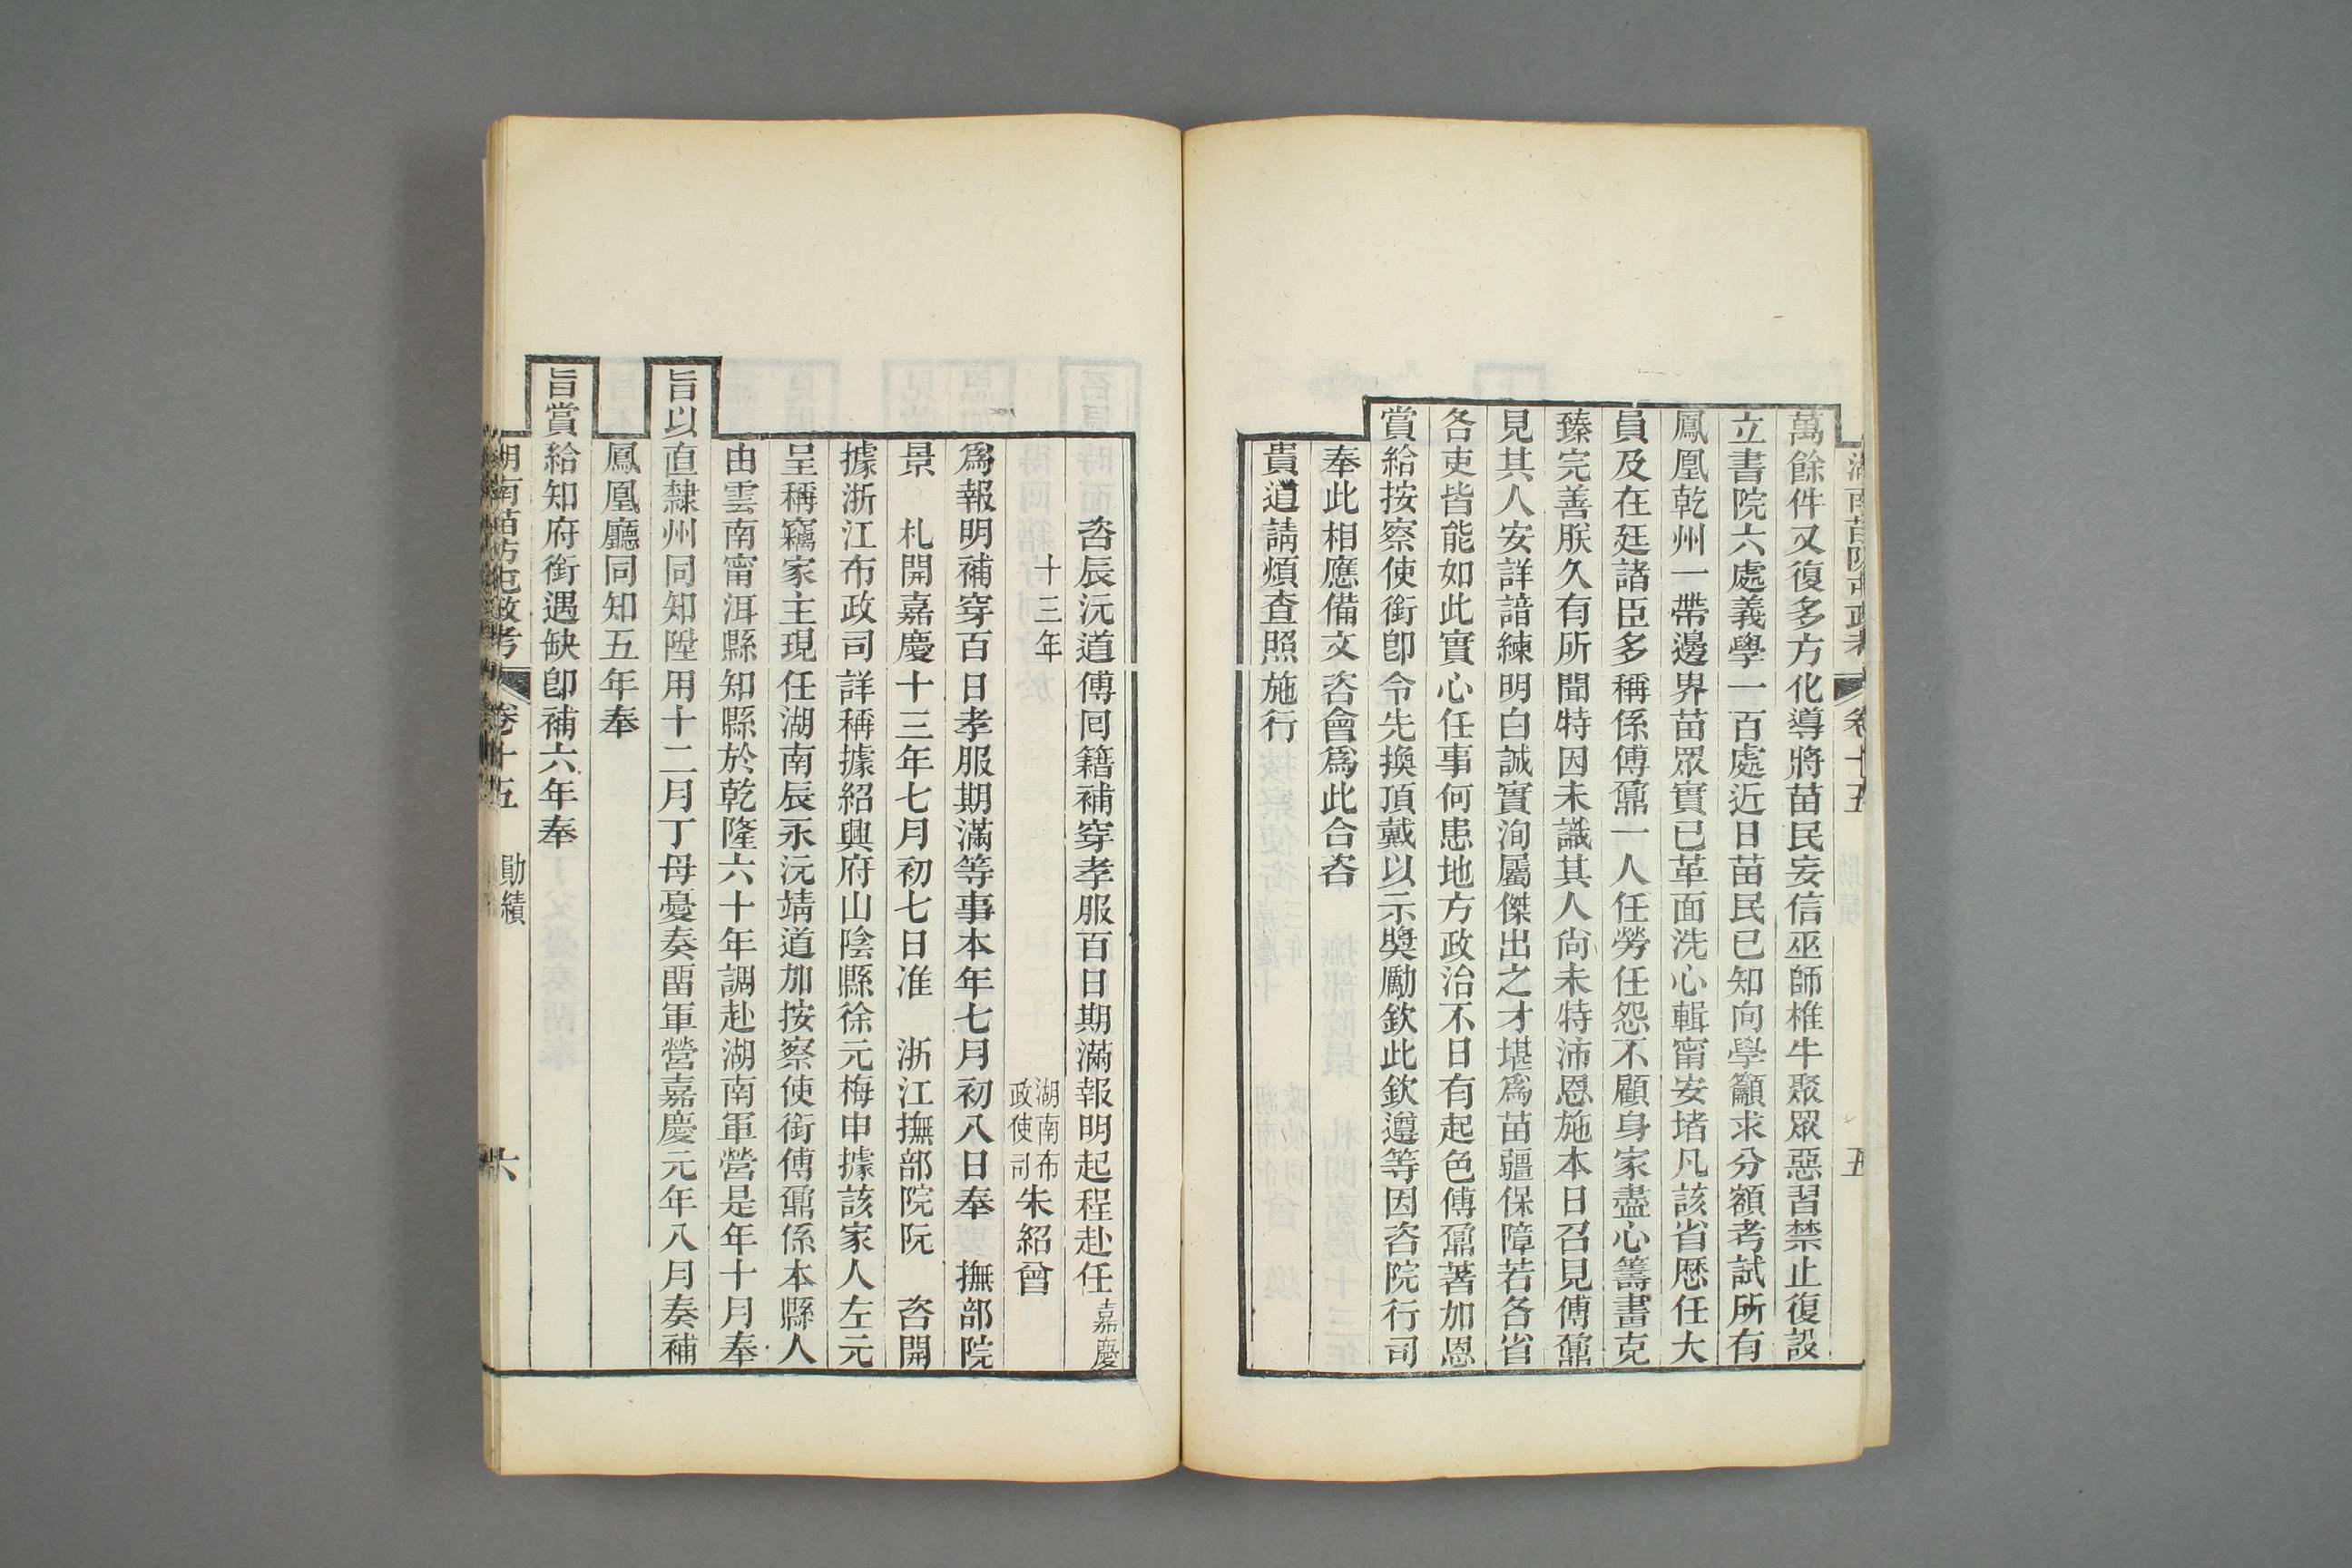 湖南苗防屯政考 卷十五 勛績 五
萬餘件又復多方化導將苗民妄信巫師椎牛聚眾惡習禁止復設
立書院六處義學一百處近日苗民已知向學籲求分額考試所有
鳳凰乾州一帶邊界苗眾實已革面洗心輯甯安堵凡該省歷任大
員及在廷諸臣多稱係傅鼐一人任勞任怨不顧身家盡心籌畫克
臻完善朕久有所聞特因未識其人尙未特沛恩施本日召見傅鼐
見其人安詳諳練明白誠實洵屬傑出之才堪爲苗疆保障若各省
各吏皆能如此實心任事何患地方政治不日有起色傅鼐著加恩
賞給按察使銜卽令先換頂戴以示獎勵欽此欽遵等因咨院行司
奉此相應備文咨會爲此合咨
貴道請煩查照施行
咨辰沅道傅回籍補穿孝服百日期滿報明起程赴任嘉慶
十三年 湖南布政使司朱紹曾
爲報明補穿百日孝服期滿等事本年七月初八日奉 撫部院
景 札開嘉慶十三年七月初七日准 浙江撫部院阮 咨開
據浙江布政司詳稱據紹興府山陰縣徐元梅申據該家人左元
呈稱竊家主現任湖南辰永沅靖道加按察使銜傅鼐係本縣人
由雲南甯洱縣知縣於乾隆六十年調赴湖南軍營是年十月奉
旨以直隸州同知陞用十二月丁母憂奏畱軍營嘉慶元年八月奏補
鳳凰廳同知五年奉
旨賞給知府銜遇缺卽補六年奉
湖南苗防屯政考 卷十五 勛績 六